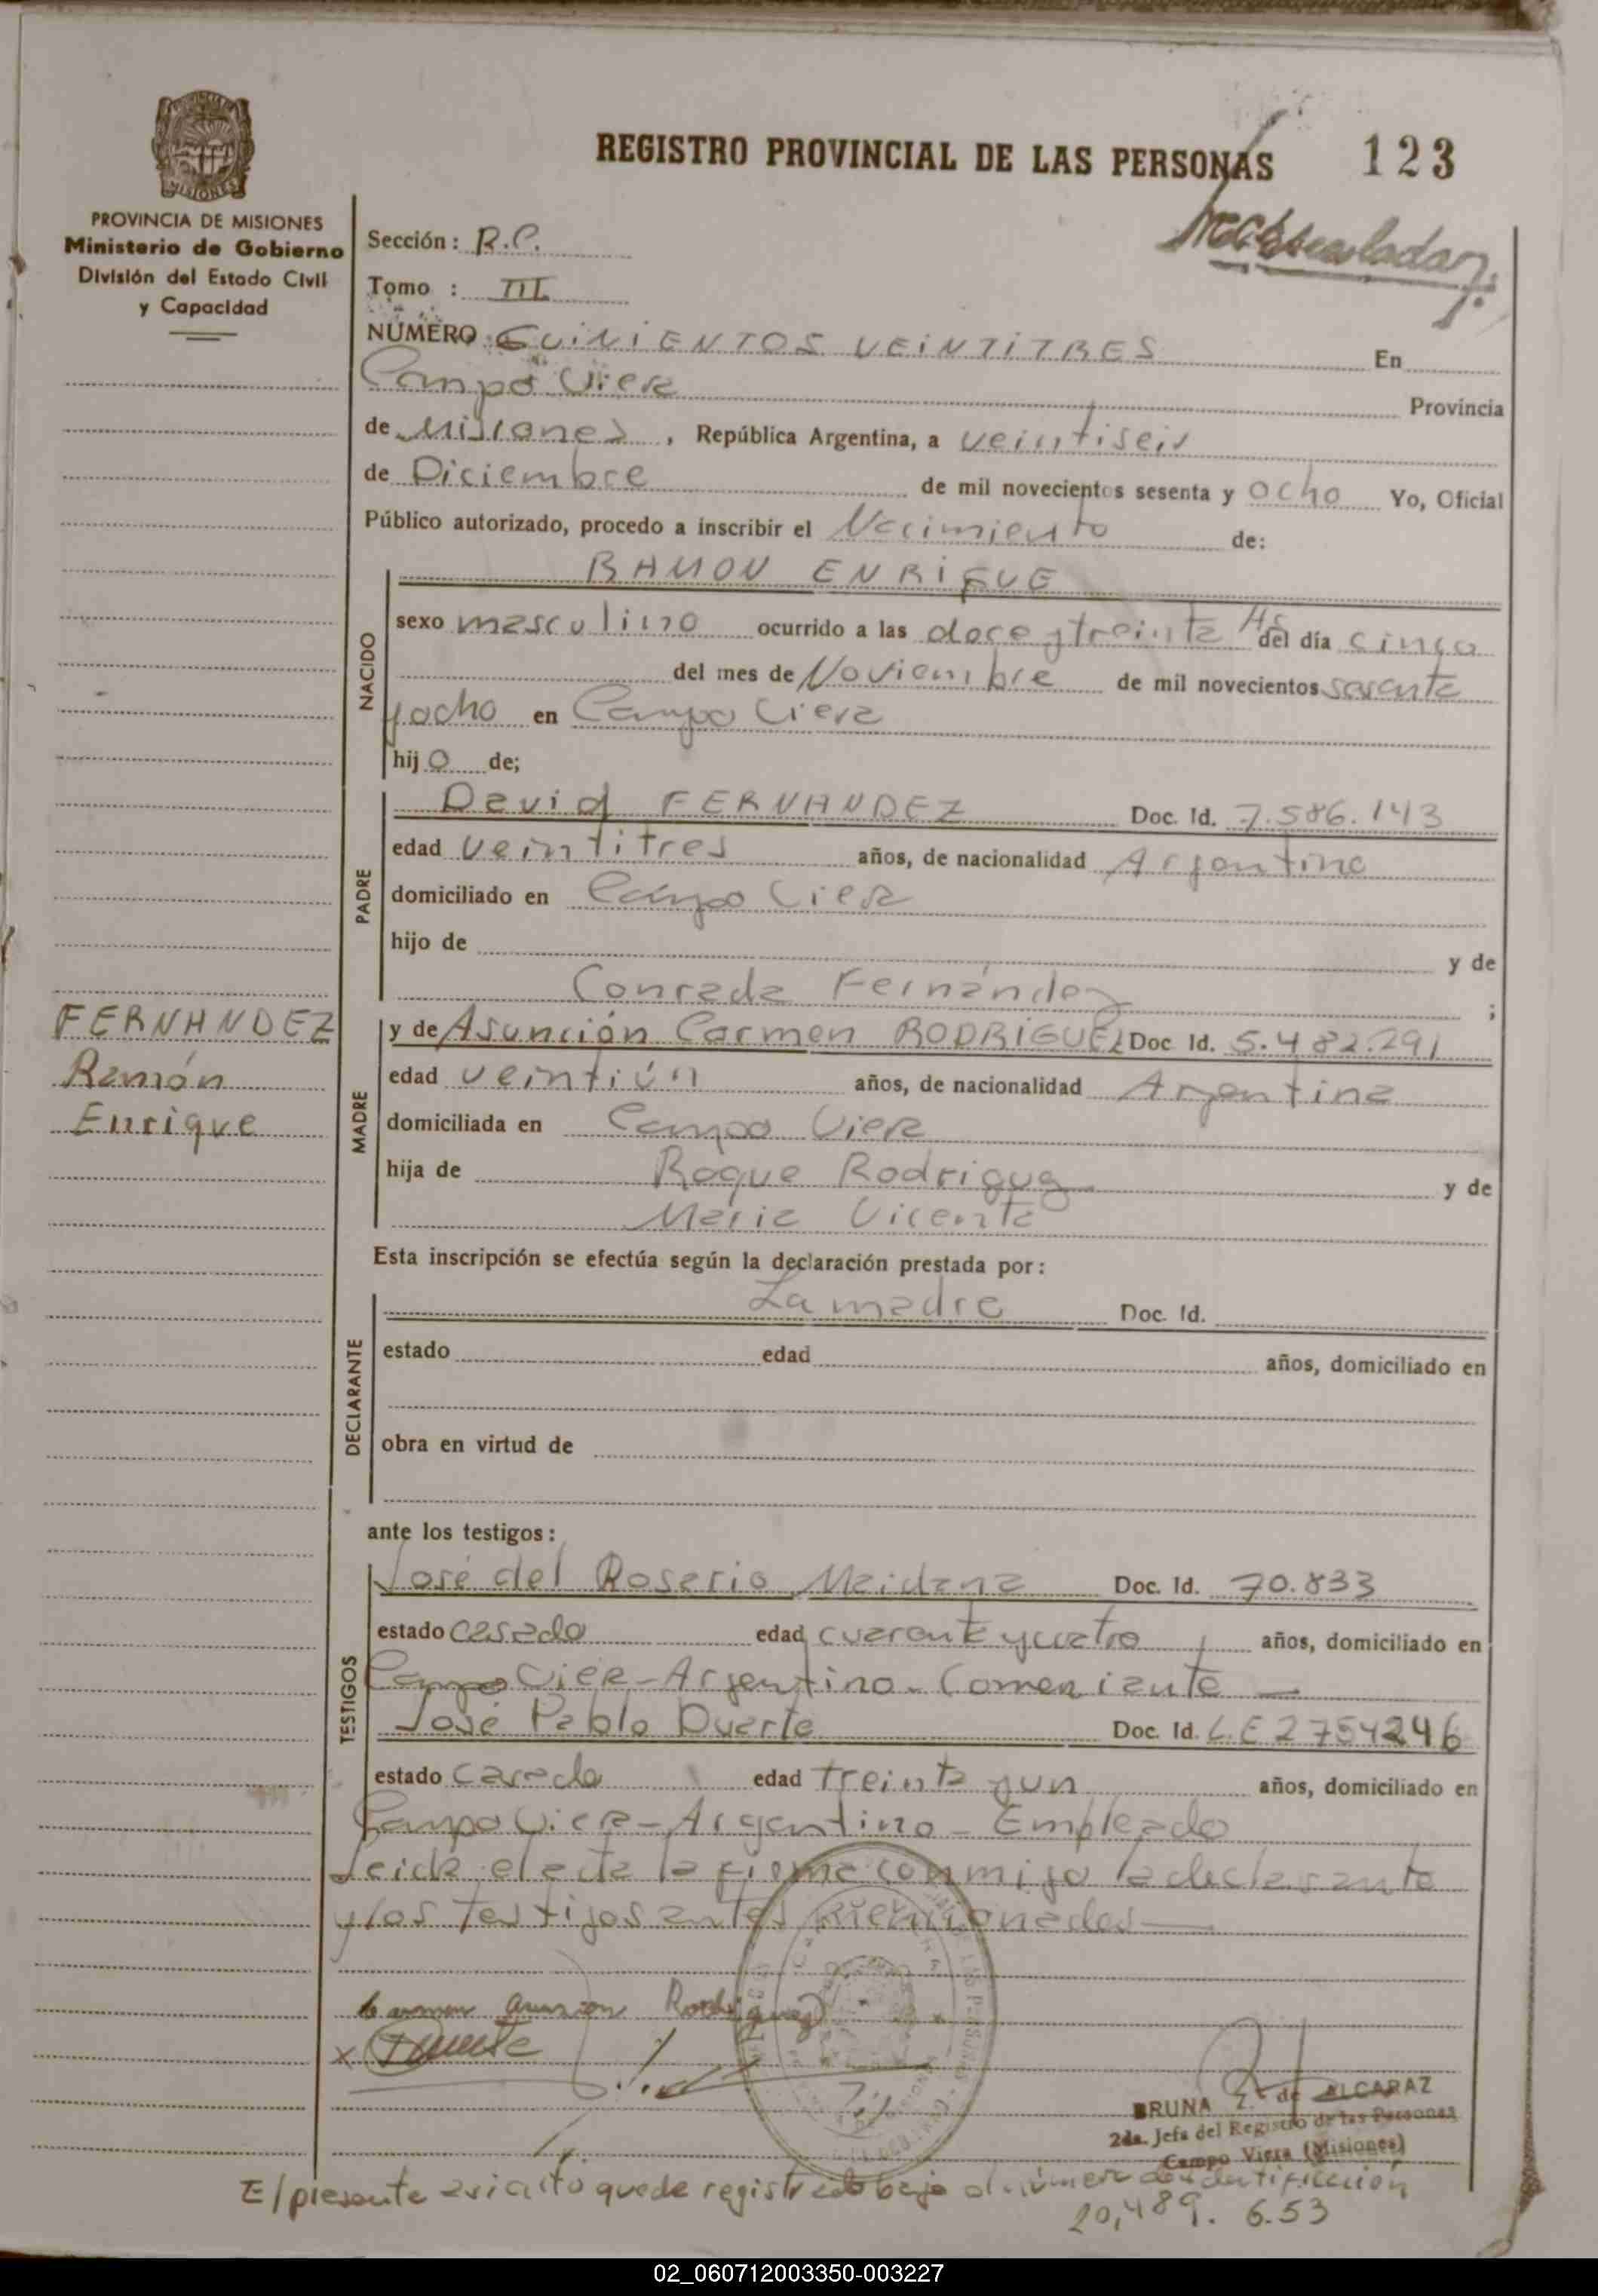 REGISTRO PROVINCIAL DE LAS PERSONAS
123
MISIONES
PROVINCIA DE MISIONES
Ministerio de Gobierno
División del Estado Civil
y Capacidad
Sección: R.P.
Tomo : III
NÚMERO QUINIENTOS VEINTITRES En
Campo Viera Provincia
de Misiones, República Argentina, a veintiseis
de Diciembre de mil novecientos sesenta y ocho Yo, Oficial
Público autorizado, procedo a inscribir el Nacimiento de:
RAMON ENRIQUE
NACIDO
sexo masculino ocurrido a las doce y treinta Hs del día cinco
del mes de Noviembre de mil novecientos sesenta
y ocho en Campo Viera
hij o de;
PADRE
David FERNANDEZ Doc. Id. 7.586.143
edad veintitres años, de nacionalidad Argentino
domiciliado en Campo Viera
hijo de y de
Conrada Fernández ;
FERNANDEZ
Ramón
Enrique
MADRE
y de Asunción Carmen RODRIGUEZ Doc Id. 5.482.291
edad veintiún años, de nacionalidad Argentina
domiciliada en Campo Viera
hija de Roque Rodriguez y de
Maria Vicenta
Esta inscripción se efectúa según la declaración prestada por:
DECLARANTE
La madre Doc. Id.
estado edad años, domiciliado en
obra en virtud de
ante los testigos:
TESTIGOS
José del Rosario Maidana Doc. Id. 70.833
estado casado edad cuarenta y cuatro años, domiciliado en
Campo Viera - Argentino - Comerciante
José Pablo Duarte Doc. Id. L.E 2754246
estado casado edad treinta y un años, domiciliado en
Campo Viera - Argentino - Empleado
Leida el acta la firma conmigo la declarante
y los testigos antes mencionados
Carmen Asunzion Rodriguez
x Duarte
BRUNA Z. de ALCARAZ
2da. Jefa del Registro de las Personas
Campo Viera (Misiones)
El presente quede registrado bajo el número de identificación
20,489. 6.53
02_060712003350-003227